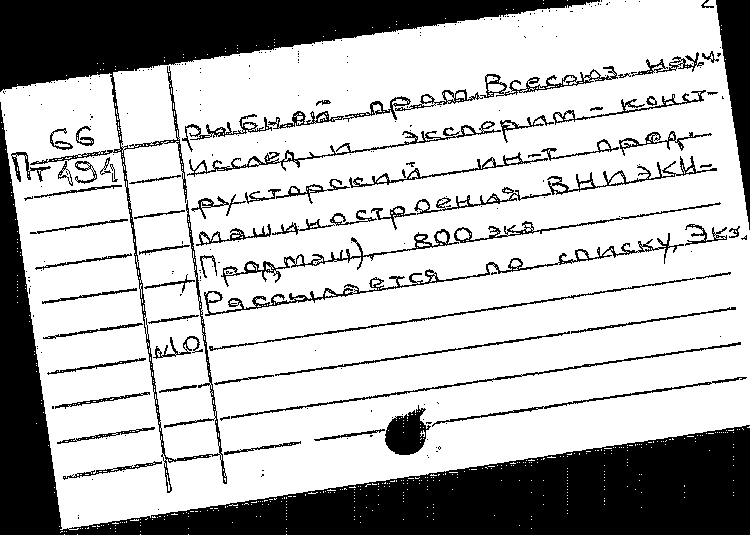 2
66
Пт494
рыбной пром. Всесоюз. науч.
исслед. и эксперим-конст-
рукторский ин-т прод.
машиностроения ВНИЭКИ-
Продмаш). 800 экз.
Рассылается по списку, Экз.
№10.